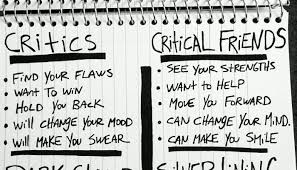 CRITICS
• FIND YOUR FLAWS
• WANT TO WIN
• HOLD YOU BACK
• WILL CHANGE YOUR MOOD
• WILL MAKE YOU SWEAR
CRITICAL FRIENDS
• SEE YOUR STRENGTHS
• WANT TO HELP
• MOVE YOU FORWARD
• CAN CHANGE YOUR MIND.
• CAN MAKE YOU SMILE
SILVER LINING